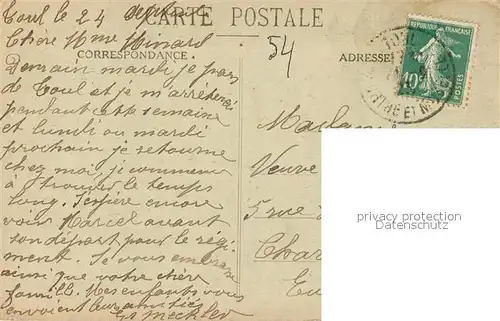 Toul le 24
CARTE POSTALE
Chère Mme Minard
54
CORRESPONDANCE
ADRESSE
Demain mardi je pars
de Toul et je m'arrêterai
pendant cette semaine
et lundi ou mardi
prochain je retourne
chez moi, je commence
à trouver le temps
long. J'espère encore
voir Marcel avant
son départ pour le régi-
ment. Je vous embrasse
ainsi que votre chère
famille. Mes enfants vous
envoient leurs amitiés
Madame
Veuve
5 rue
Char
Eu
REPUBLIQUE FRANÇAISE
10c
POSTES
TOUL
privacy protection
Datenschutz